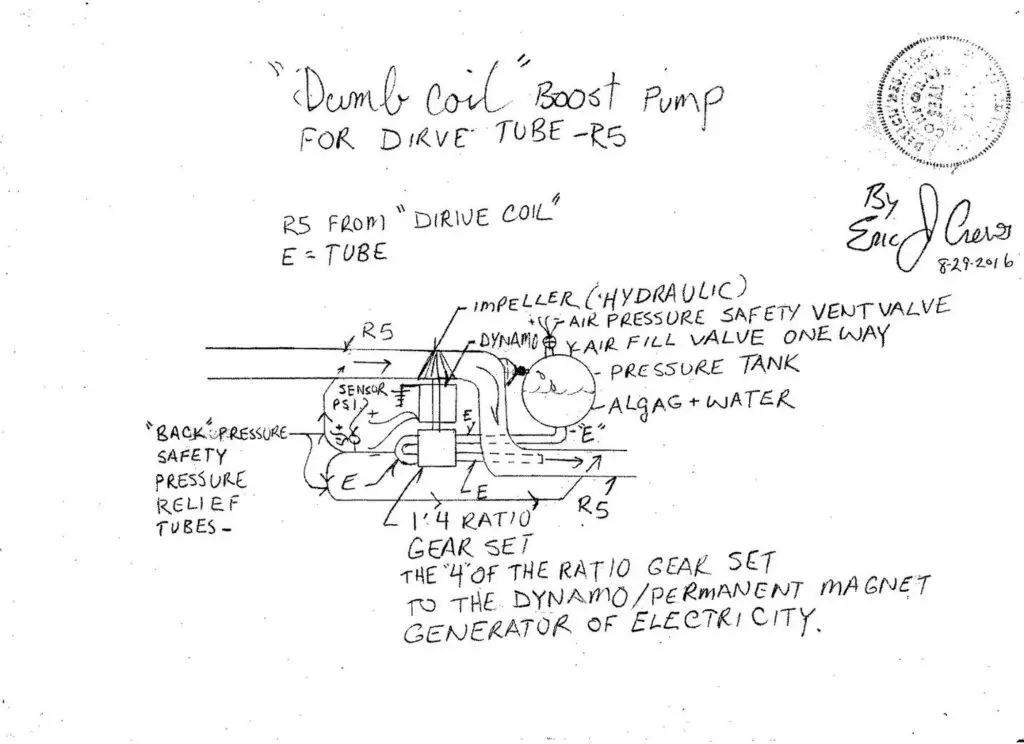 "Dumb coil" BOOST PUMP
FOR DIRVE TUBE -R5
By
Eric J Crews
8-29-2016
R5 FROM "DIRIVE COIL"
E = TUBE
IMPELLER ('HYDRAULIC)
+ - AIR PRESSURE SAFETY VENT VALVE
R5
DYNAMO
AIR FILL VALVE ONE WAY
PRESSURE TANK
SENSOR
PSI.
ALGAG + WATER
+
E
"E"
"BACK" PRESSURE
SAFETY
PRESSURE
RELIEF
TUBES -
E
E
R5
1:4 RATIO
GEAR SET
THE "4" OF THE RATIO GEAR SET
TO THE DYNAMO/PERMANENT MAGNET
GENERATOR OF ELECTRICITY.